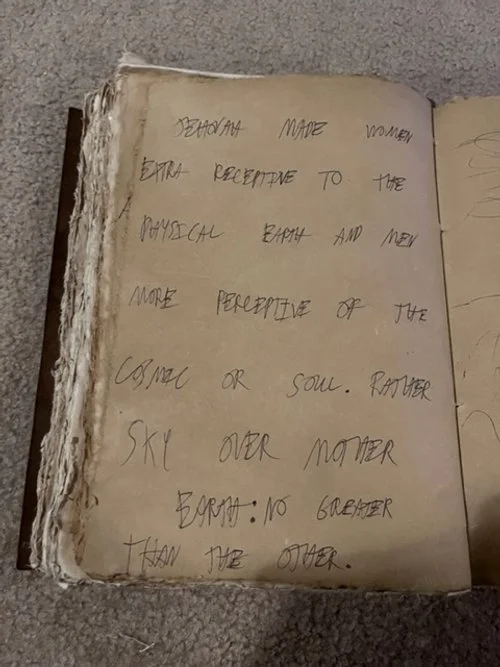 JEHOVAH MADE WOMEN
EXTRA RECEPTIVE TO THE
PHYSICAL EARTH AND MEN
MORE PERCEPTIVE OF THE
COSMIC OR SOUL. RATHER
SKY OVER MOTHER
EARTH: NO GREATER
THAN THE OTHER.